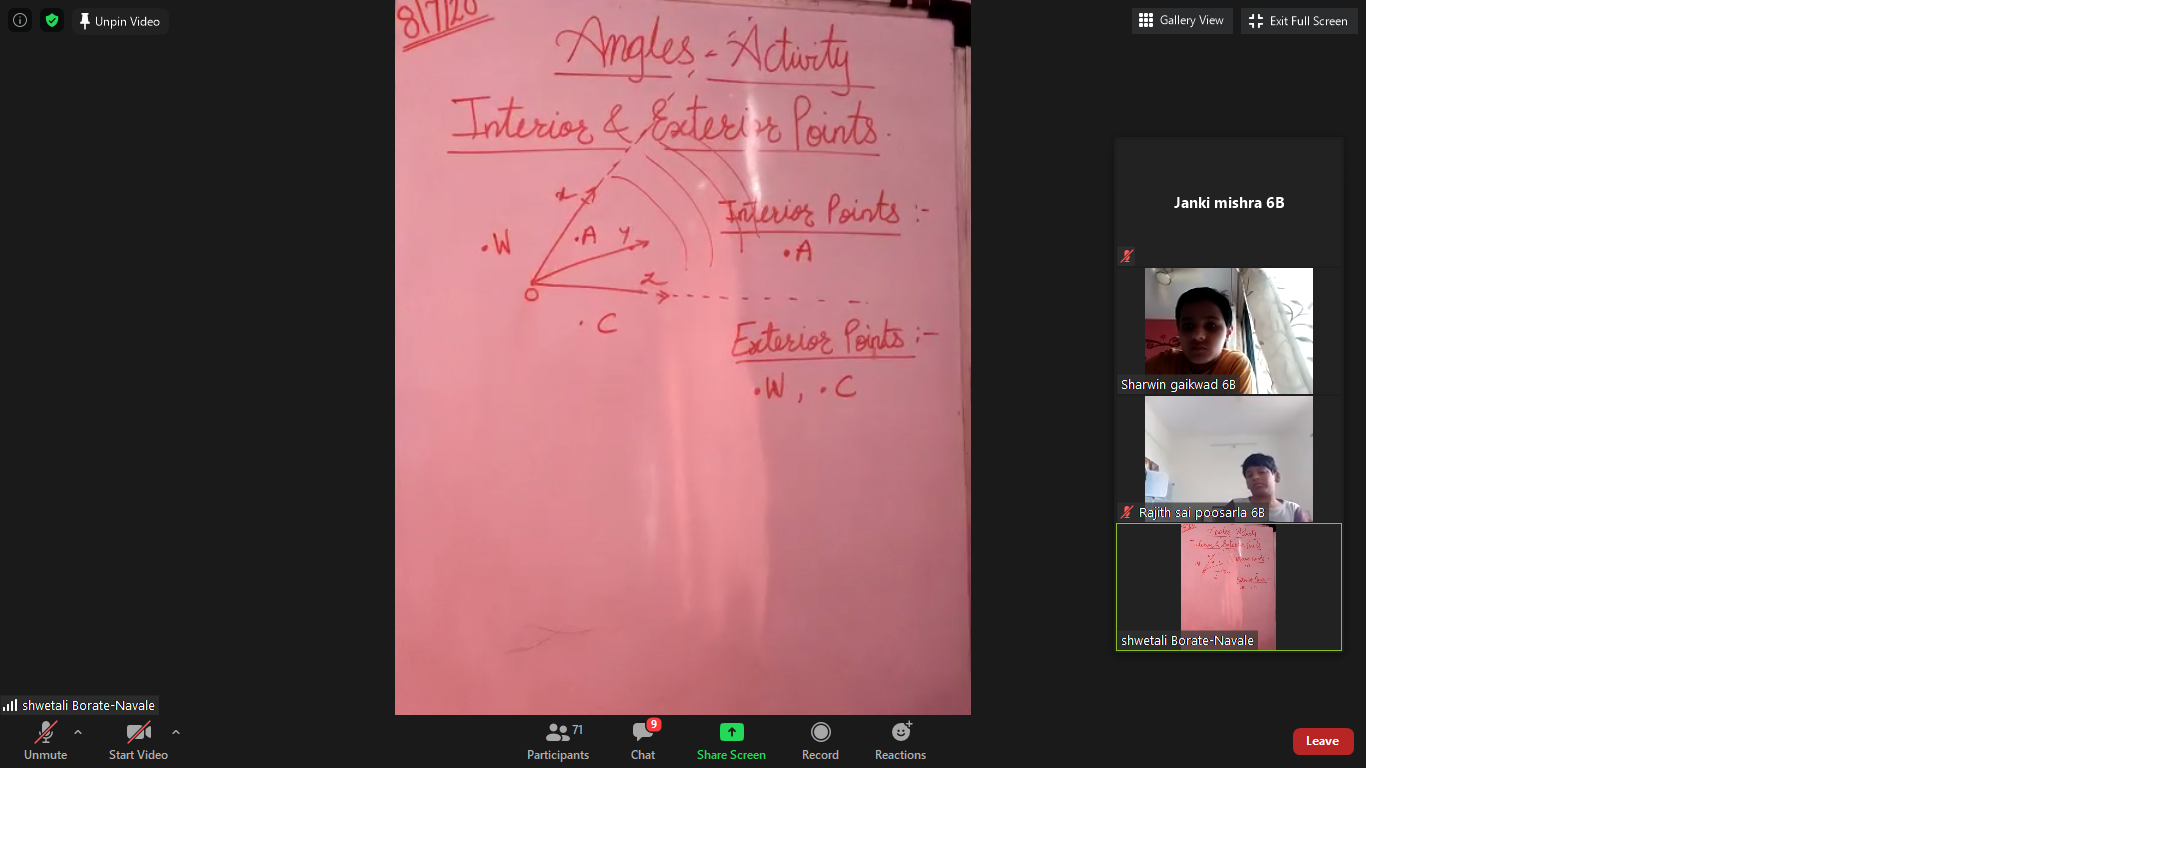 Unpin Video
Gallery View
Exit Full Screen
8/7/20
Angles - Activity
Interior & Exterior Points.
x
.A y
.W
O
z
. C
Interior Points :-
.A
Exterior Points :-
.W , . C
Janki mishra 6B
Sharwin gaikwad 6B
Rajith sai poosarla 6B
shwetali Borate-Navale
shwetali Borate-Navale
Unmute
Start Video
Participants
71
Chat
9
Share Screen
Record
Reactions
Leave